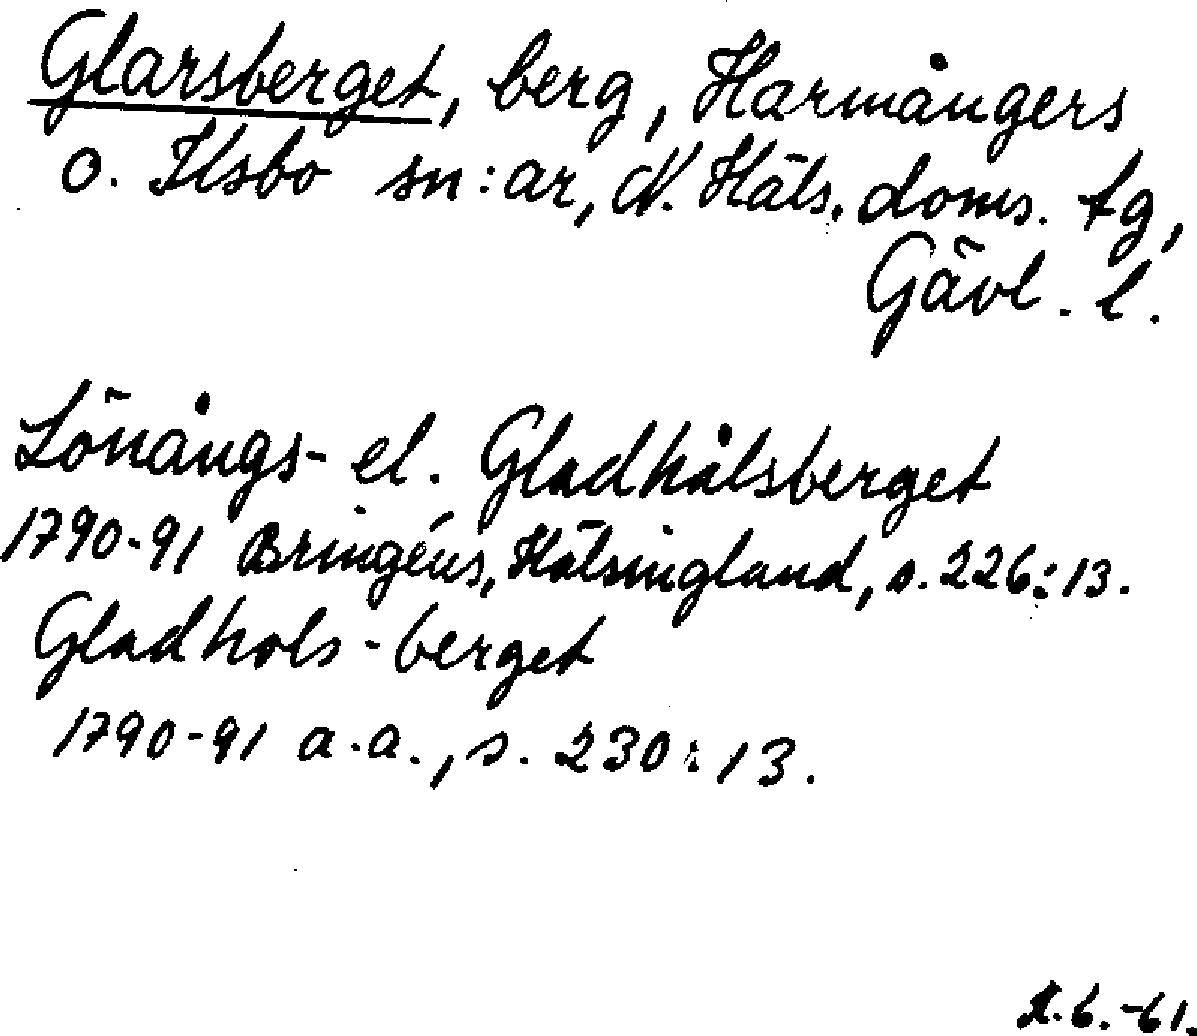 Glarsberget, berg, Harmångers
o. Ilsbo sn:ar, N. Häls. doms. tg,
Gävl. l.
Lönångs- el. Gladhålsberget
1790-91 Bringéus, Hälsingland, s. 226:13.
Gladhols-berget
1790-91 a.a., s. 230:13.
6.-61.